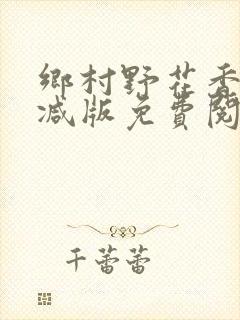 鄉村野花香
減版免費閱
千蕾蕾